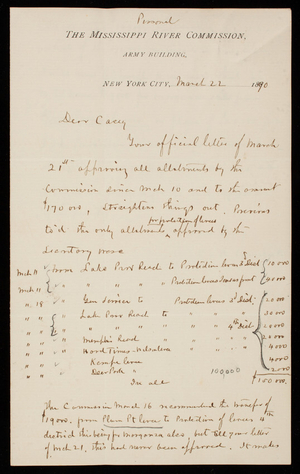 Personal
THE MISSISSIPPI RIVER COMMISSION,
ARMY BUILDING,
NEW YORK CITY, March 22 1890
Dear Casey
Your official letter of March
21st approving all allotments by the
Commission since Mch 10 and to the amount
$170 000, straightens things out. Previous
for protection of levees
to'd the only allotments approved by the
Secretary were
Mch 11 From Lake Prov Reach to Protection levees 3d Dist 10000
Mch 11 " " " " " Protection levees 40000
" 18 " Gen Service to Protection levees 3d Dist
" " Lake Prov Reach to " " "
" " " " " " 4th Dist
" " Memphis Reach " "
" " Hard Times " "
" " Kempe levee 4000
" " 100,000 2000
In all 100,000
The Commission March 16 recommended the transfer of
$19000. from Plum Pt levee to Protection of levees 4th
district this being for Morganza also but till your letter
of Mch 21, this had never been approved. It makes